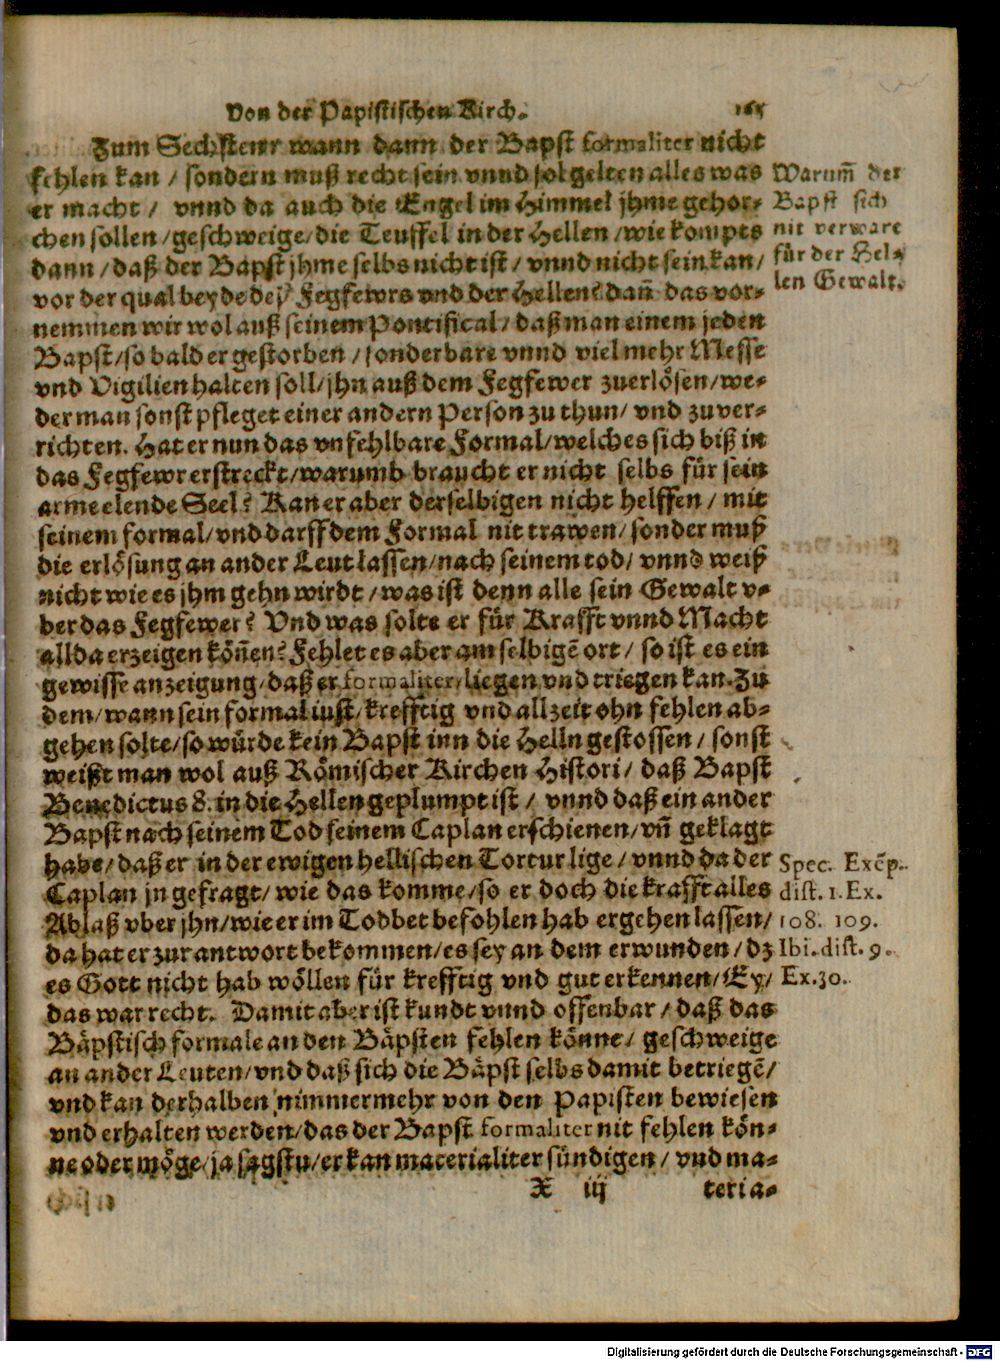 Von der Papistischen Kirch. 165
Zum Sechstenr wann dann der Bapst formaliter nicht
fehlen kan / sondern muß recht sein vnnd sol gelten alles was
er macht / vnnd da auch die Engel im Himmel jhme gehor-
chen sollen / geschweige / die Teuffel in der Hellen / wie kompts
dann / daß der Bapst jhme selbs nicht ist / vnnd nicht sein kan /
vor der qual beyde deß Fegfewrs vnd der Hellen? dañ das vor-
nemmen wir wol auß seinem Pontifical / daß man einem jeden
Bapst / so bald er gestorben / sonderbare vnnd viel mehr Messe
vnd Vigilien halten soll / jhn auß dem Fegfewer zuerlösen / we-
der man sonst pfleget einer andern Person zu thun / vnd zuver-
richten. Hat er nun das vnfehlbare Formal / welches sich biß in
das Fegfewr erstreckt / warumb braucht er nicht selbs für sein
arme elende Seel? Kan er aber derselbigen nicht helffen / mit
seinem formal / vnd darff dem Formal nit trawen / sonder muß
die erlösung an ander Leut lassen / nach seinem tod / vnnd weiß
nicht wie es jhm gehn wirdt / was ist denn alle sein Gewalt v-
ber das Fegfewer? Vnd was solte er für Krafft vnnd Macht
allda erzeigen köñen? Fehlet es aber am selbigē ort / so ist es ein
gewisse anzeigung / daß er formaliter / liegen vnd triegen kan. Zu
dem / wann sein formal iust / krefftig vnd allzeit ohn fehlen ab-
gehen solte / so würde kein Bapst inn die Helln gestossen / sonst
weißt man wol auß Römischer Kirchen Histori / daß Bapst
Benedictus 8. in die Hellen geplumpt ist / vnnd daß ein ander
Bapst nach seinem Tod seinem Caplan erschienen / vñ geklagt
habe / daß er in der ewigen hellischen Tortur lige / vnnd da der
Caplan jn gefragt / wie das komme / so er doch die krafft alles
Ablaß vber jhn / wie er im Todbet befohlen hab ergehen lassen /
da hat er zur antwort bekommen / es sey an dem erwunden / dz
es Gott nicht hab wöllen für krefftig vnd gut erkennen / Ey /
das war recht. Damit aber ist kundt vnnd offenbar / daß das
Bäpstisch formale an den Bäpsten fehlen könne / geschweige
an ander Leuten / vnd daß sich die Bäpst selbs damit betriegē /
vnd kan derhalben nimmermehr von den Papisten bewiesen
vnd erhalten werden / das der Bapst formaliter nit fehlen kön-
ne oder möge / ja sagstu / er kan materialiter sündigen / vnd ma-
X iij teria-
Warum̄ der
Bapst sich
nit verware
für der Hel-
len Gewalt.
Spec. Exēp.
dist. 1. Ex.
108. 109.
Ibi. dist. 9.
Ex. 30.
Digitalisierung gefördert durch die Deutsche Forschungsgemeinschaft - DFG